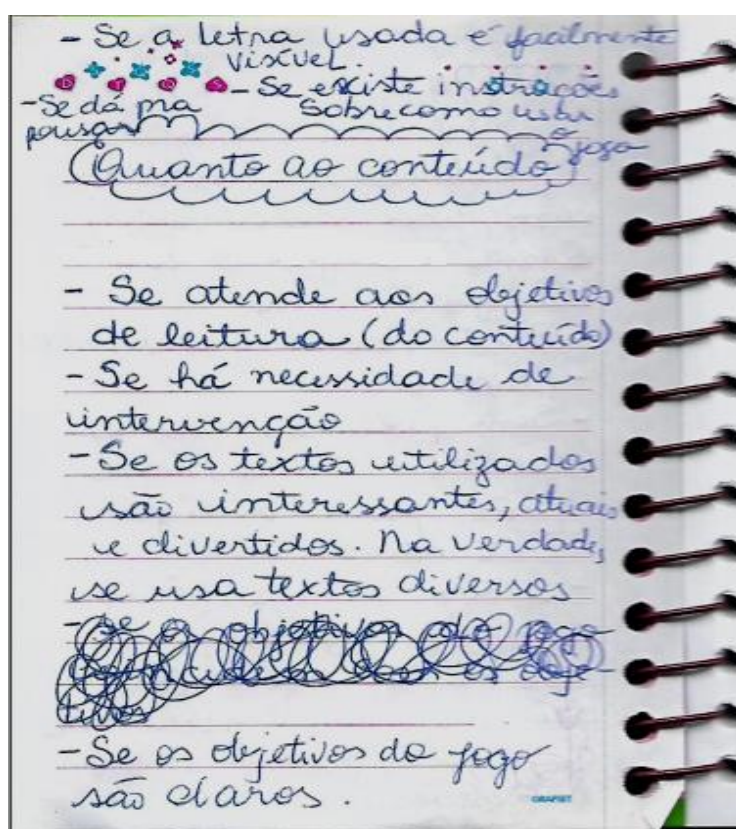 - Se a letra usada é facilmente
visível.
- Se existe instruções
sobre como usar
o jogo
- Se dá pra
pausar
Quanto ao conteúdo
- Se atende aos objetivos
de leitura (do conteúdo)
- Se há necessidade de
intervenção
- Se os textos utilizados
são interessantes, atuais
e divertidos. Na verdade,
se usa textos diversos
- Se os objetivos do jogo
com os obje-
tivos
- Se os objetivos do jogo
são claros.
GRAFSET